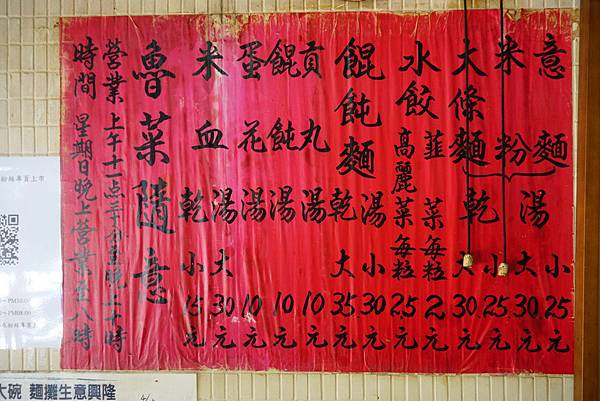 意麵
米粉
大條麵
湯 小 25元
大 30元
小 25元
乾 大 30元
水餃 韮菜每粒 2元
高麗菜每粒 25元
餛飩麵 湯 小 30元
乾 大 35元
貢丸湯 10元
餛飩湯 10元
蛋花湯 10元
大 30元
米血 乾 小 15元
魯菜隨意
營業時間
上午十一点三十分至晚上十時
星期日晚上營業至八時
粉絲專頁上市
大碗 麵攤生意興隆